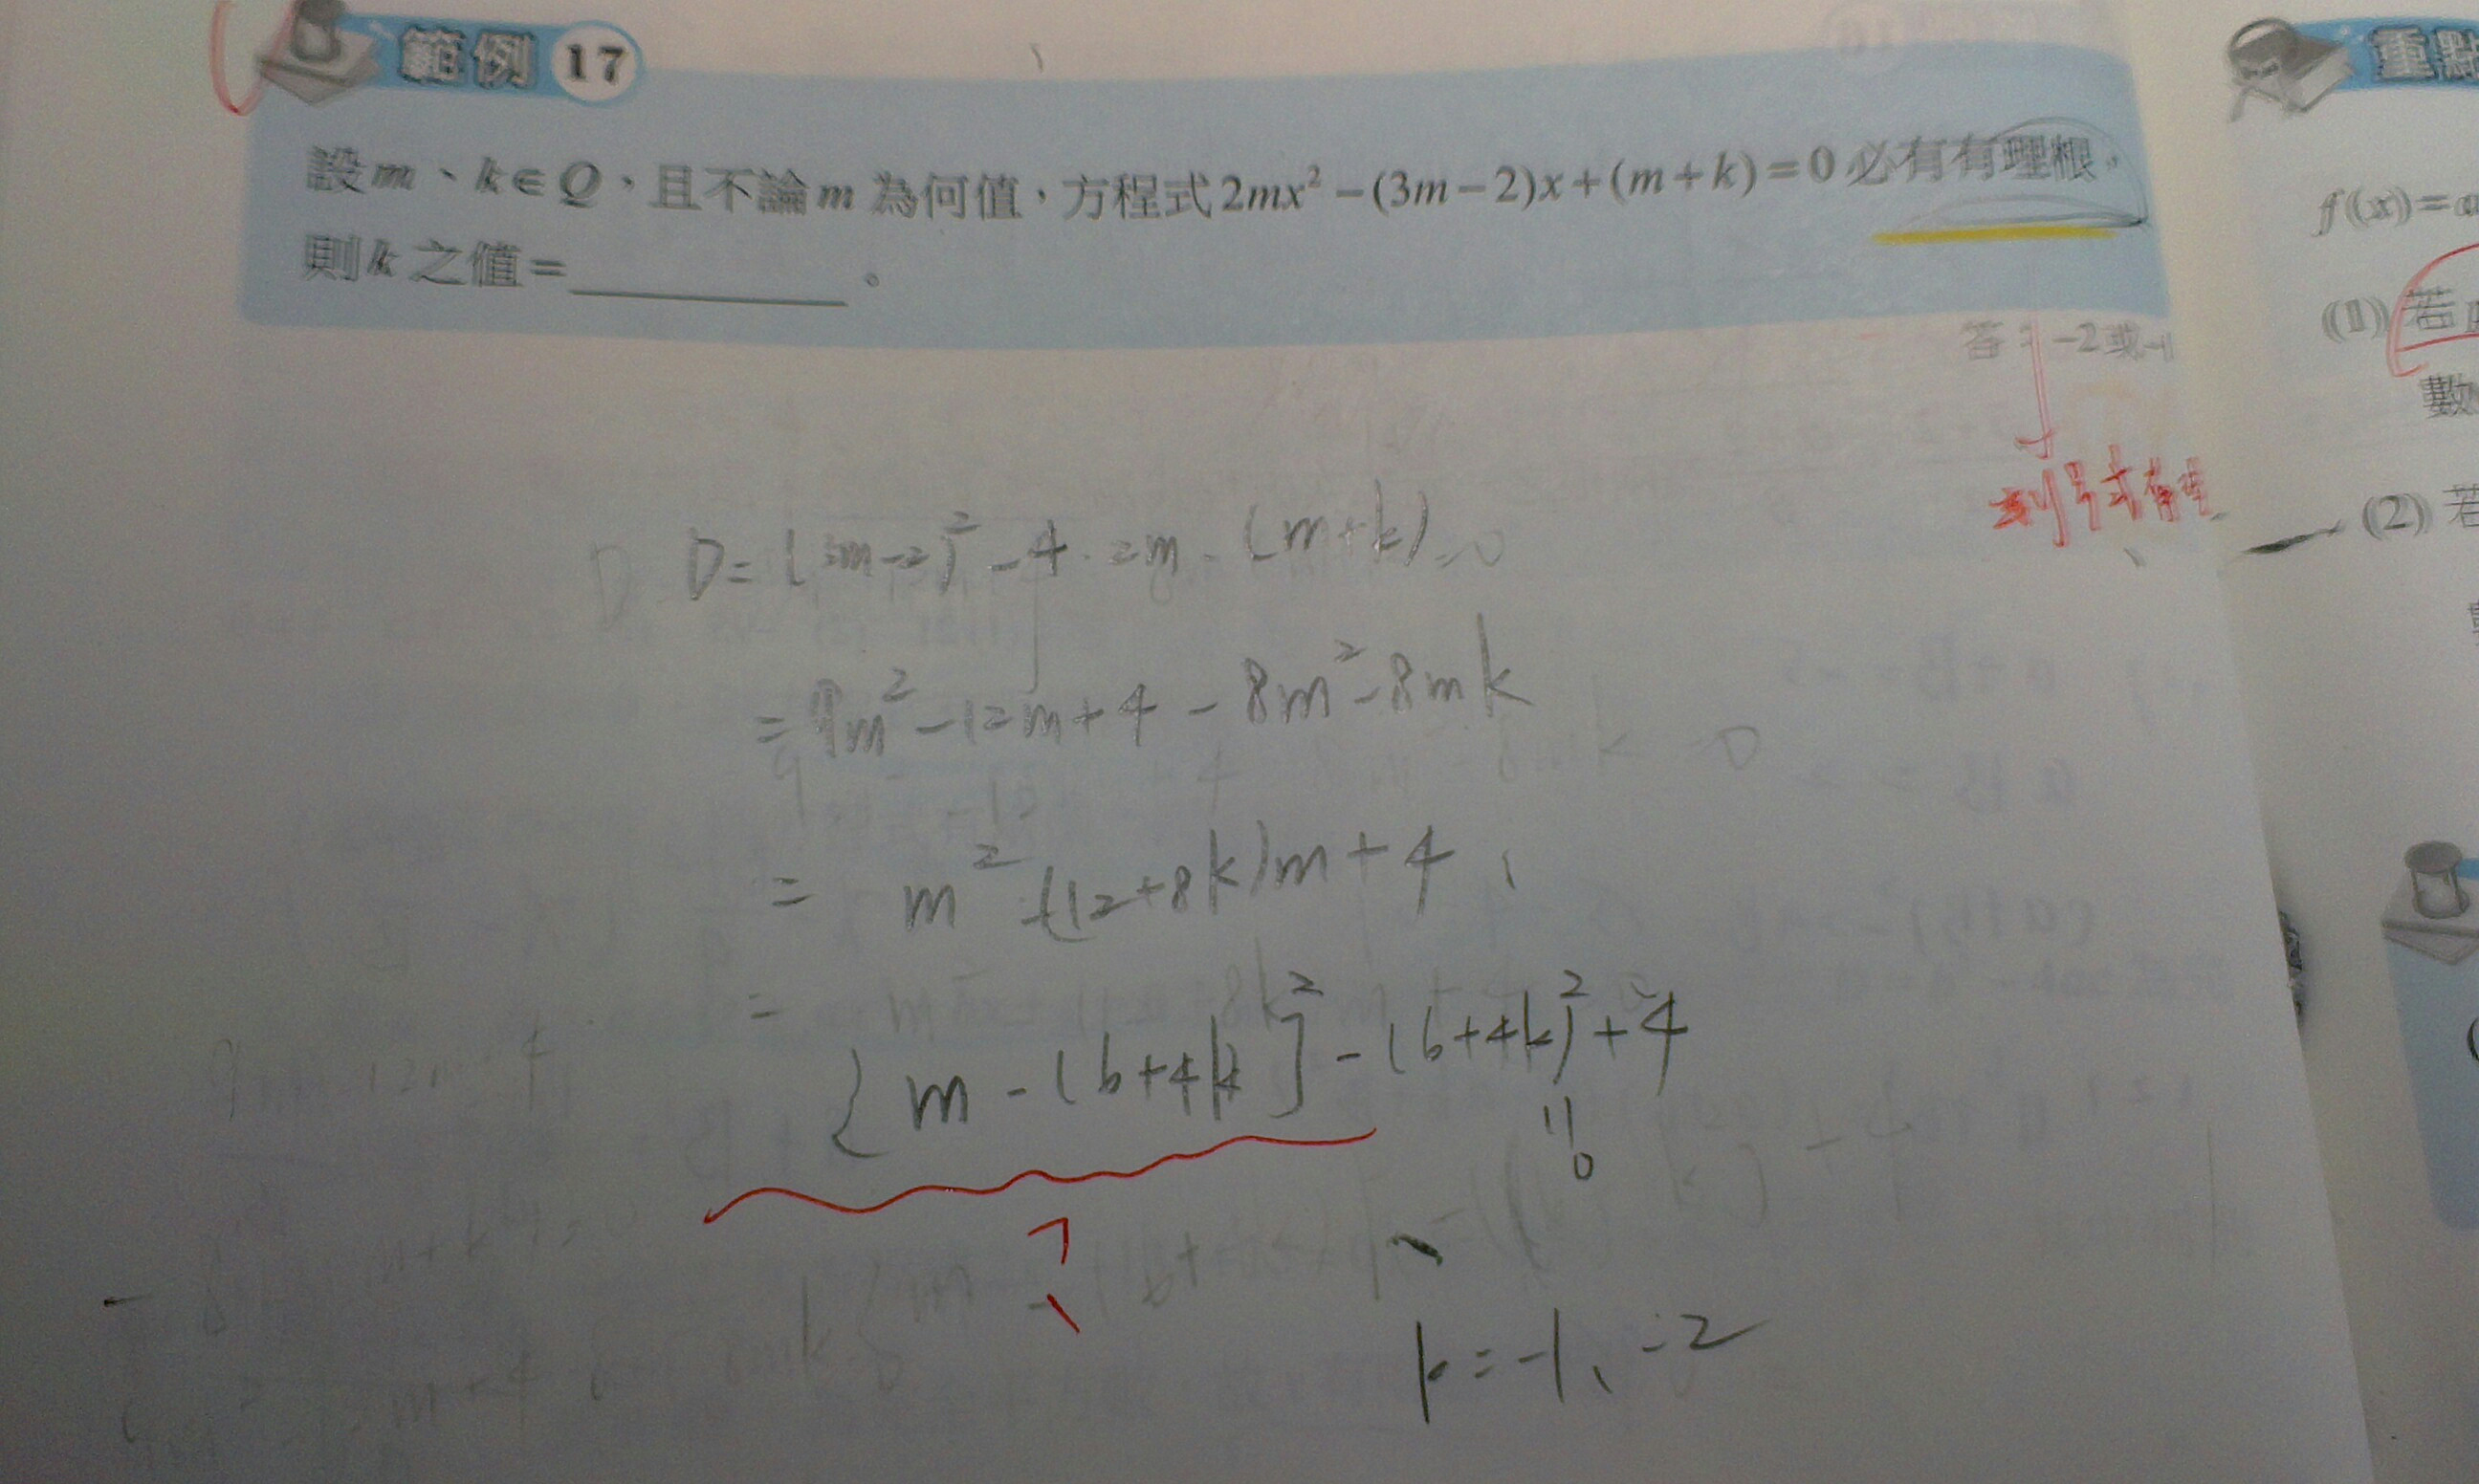 範例 17
設m、k∈Q,且不論m為何值,方程式2mx²-(3m-2)x+(m+k)=0必有有理根,
則k之值=________。
答:-2或-1
判別式有理
D=(3m-2)²-4·2m·(m+k)
=9m²-12m+4-8m²-8mk
= m²-(12+8k)m+4
=
{m-(6+4k]²-(6+4k)²+4
0
?
k=-1、-2
重點
f(x)=a
(1)若
數
(2)若